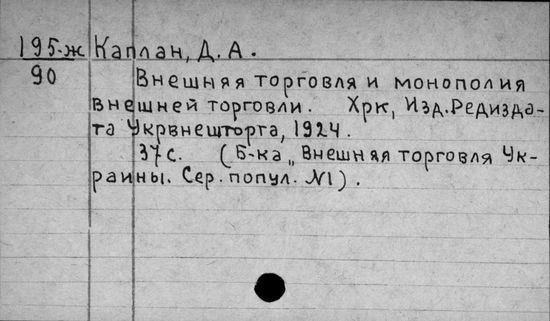 195-ж Каплан, Д. А.
90 Внешняя торговля и монополия
внешней торговли. Хрк, Изд. Редизда-
та Укрвнешторга, 1924.
37 с. (Б-ка „Внешняя торговля Ук-
раины. Сер. попул. №1).